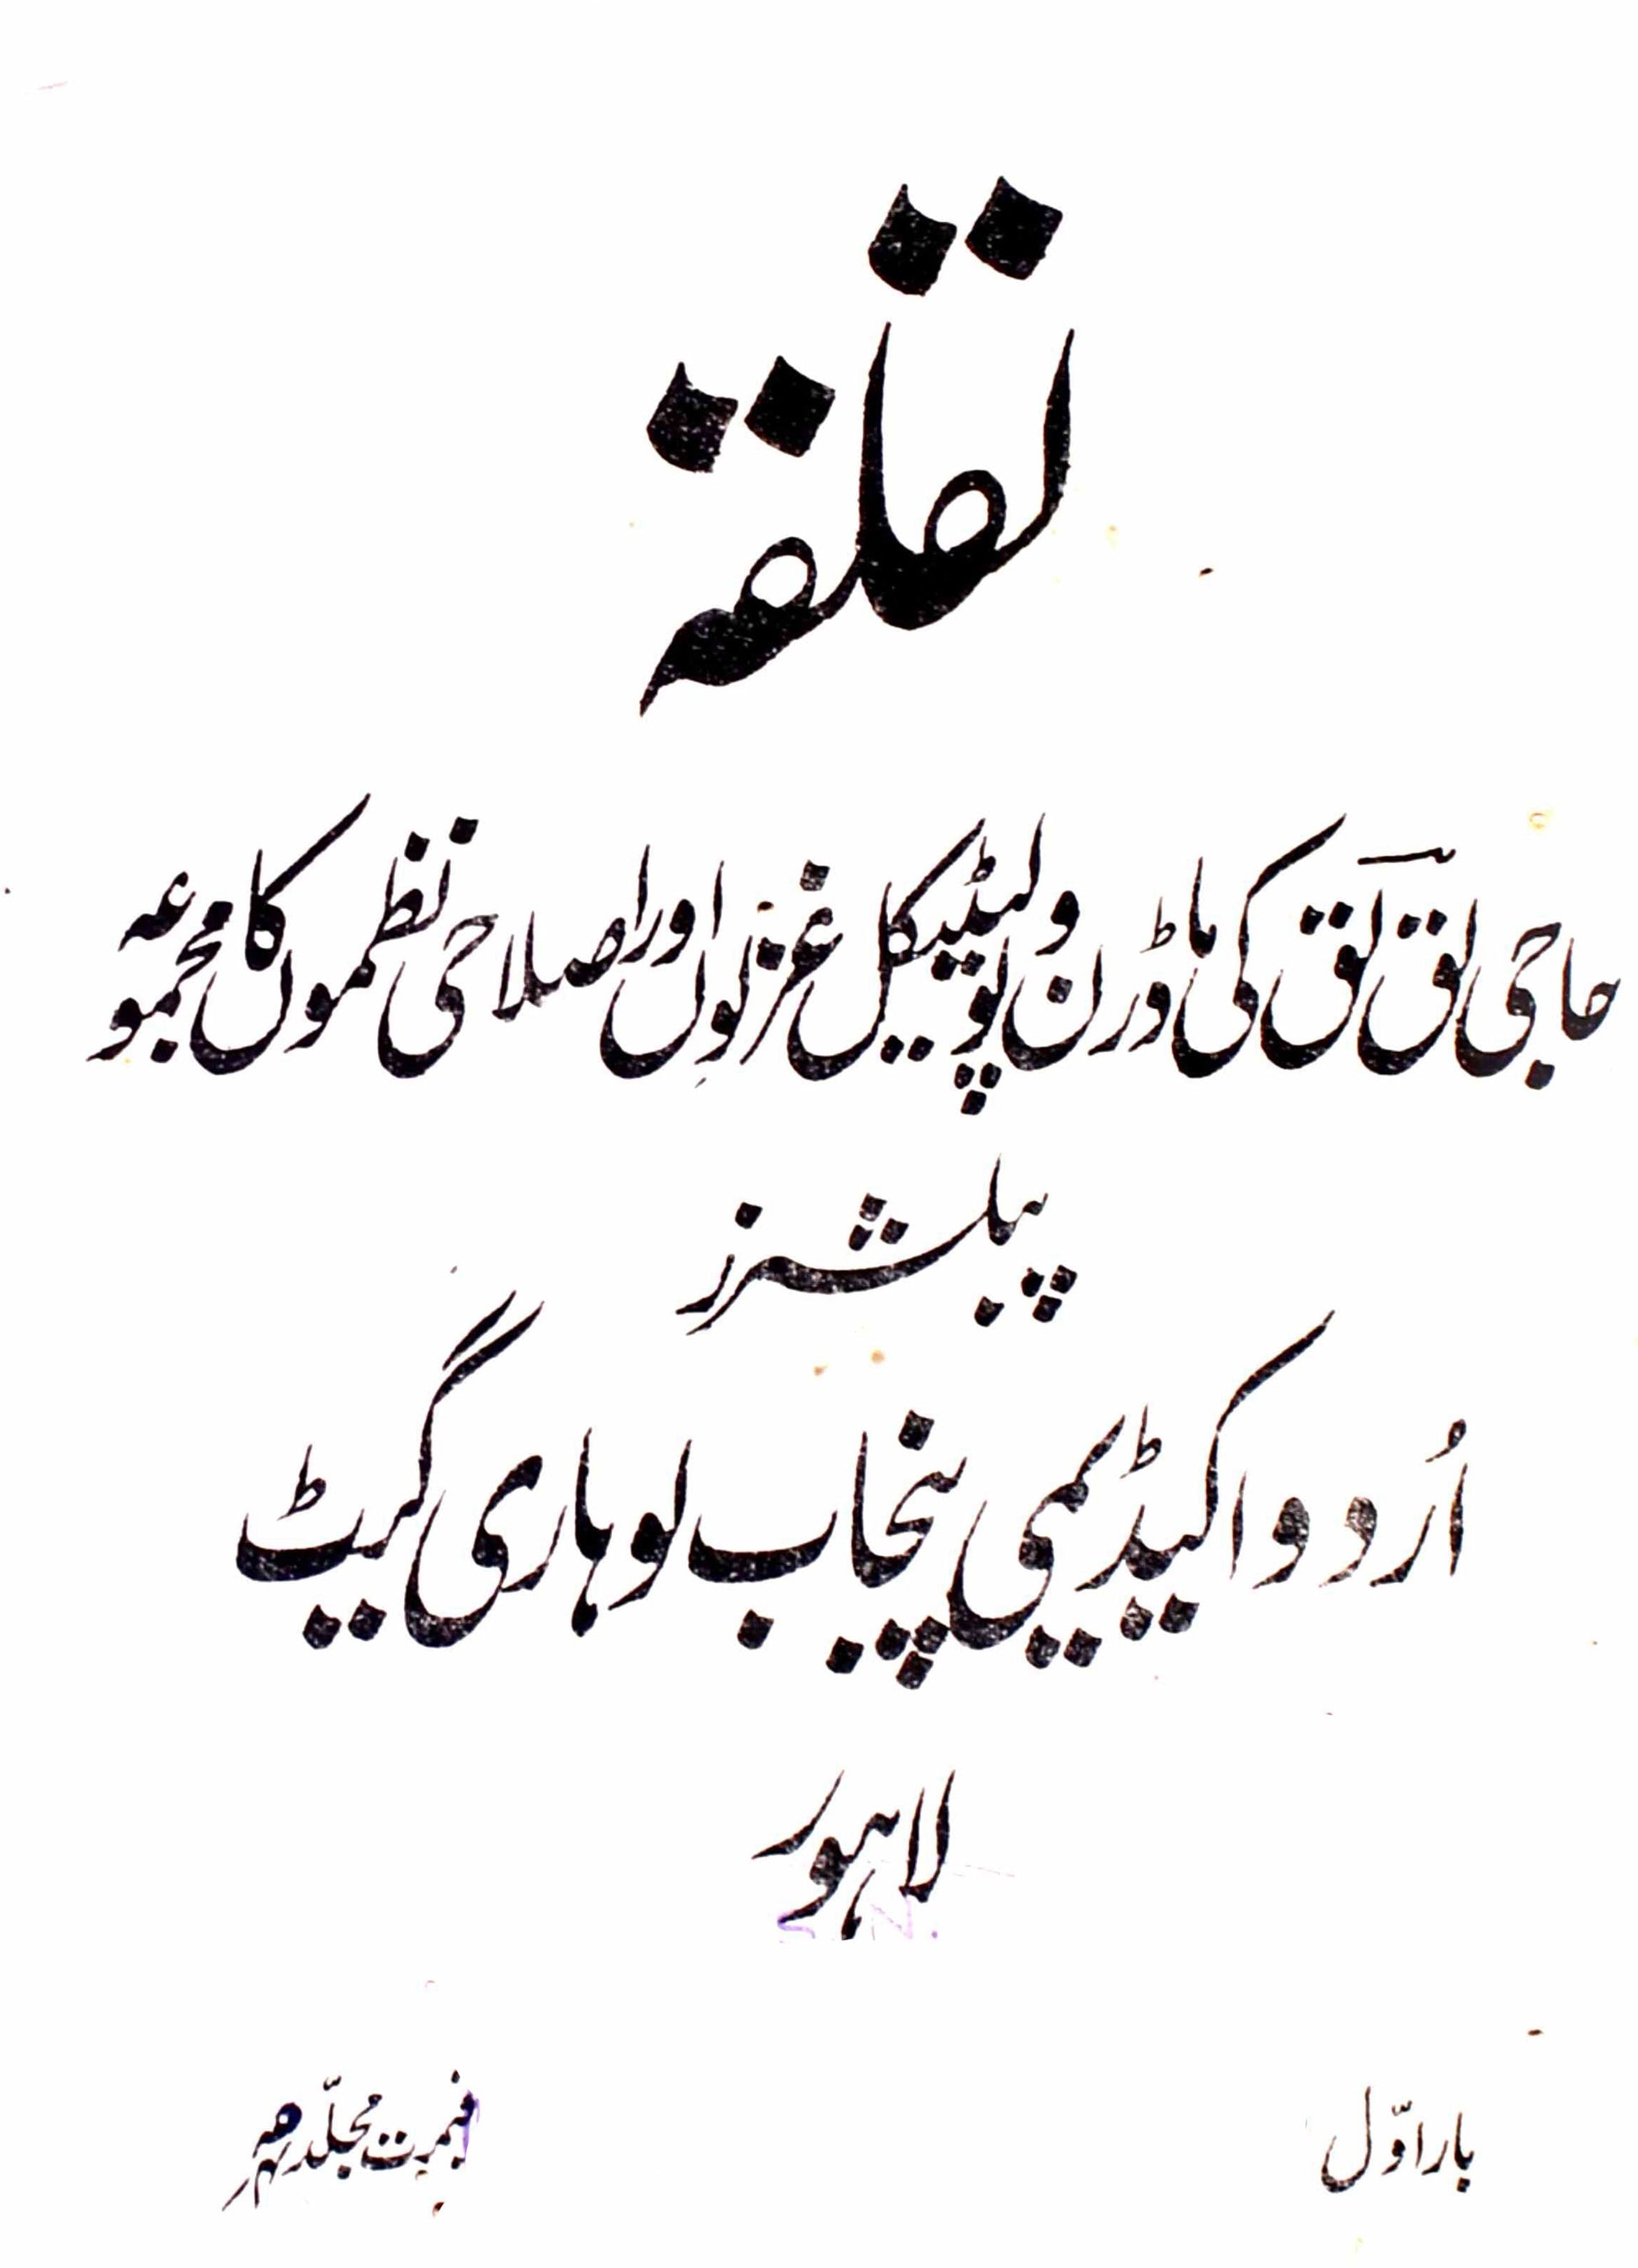 لقلقہ
حاجی لق لق کی ماڈرن و پولیٹیکل غزلوں اور اصلاحی نظموں کا مجموعہ
پبلشرز
اُردو اکیڈیمی پنجاب لوہاری گیٹ
لاہور
S. N.
بار اوّل
قیمت مجلّد